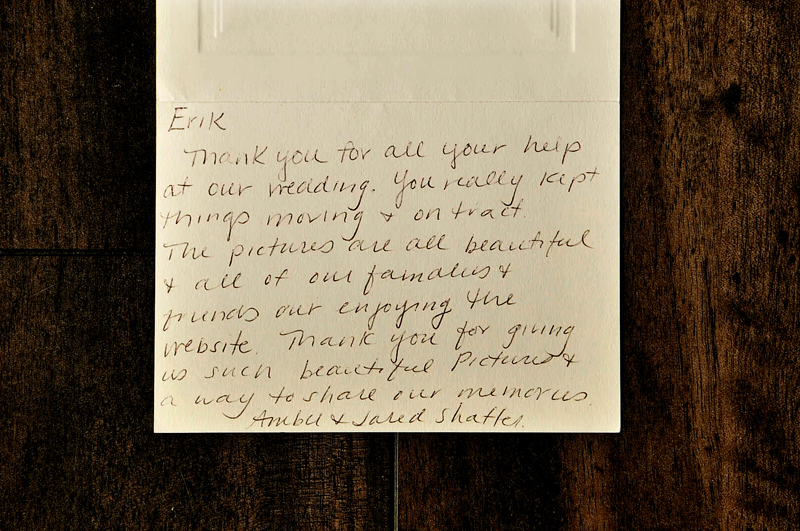 Erik
Thank you for all your help
at our wedding. You really kept
things moving & on tract.
The pictures are all beautiful
& all of our famalies &
friends our enjoying the
website. Thank you for giving
us such beautiful Pictures &
a way to share our memories.
& Jared